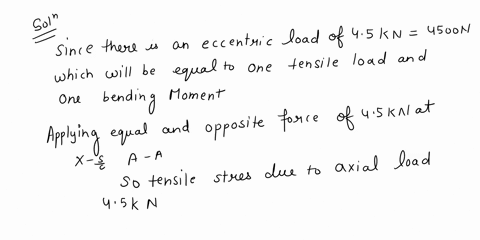 Solⁿ
Since there is an eccentric load of 4.5 kN = 4500N
which will be equal to one tensile load and
One bending Moment
Applying equal and opposite force of 4.5kN at
X-s/c A-A
So tensile stres due to axial load
4.5k N